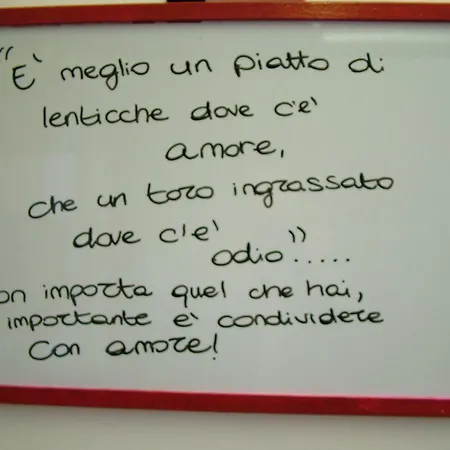 "E' meglio un piatto di
lenticche dove c'e'
amore,
che un toro ingrassato
dove c'e'
odio".....
on importa quel che hai,
importante e' condividere
con amore!